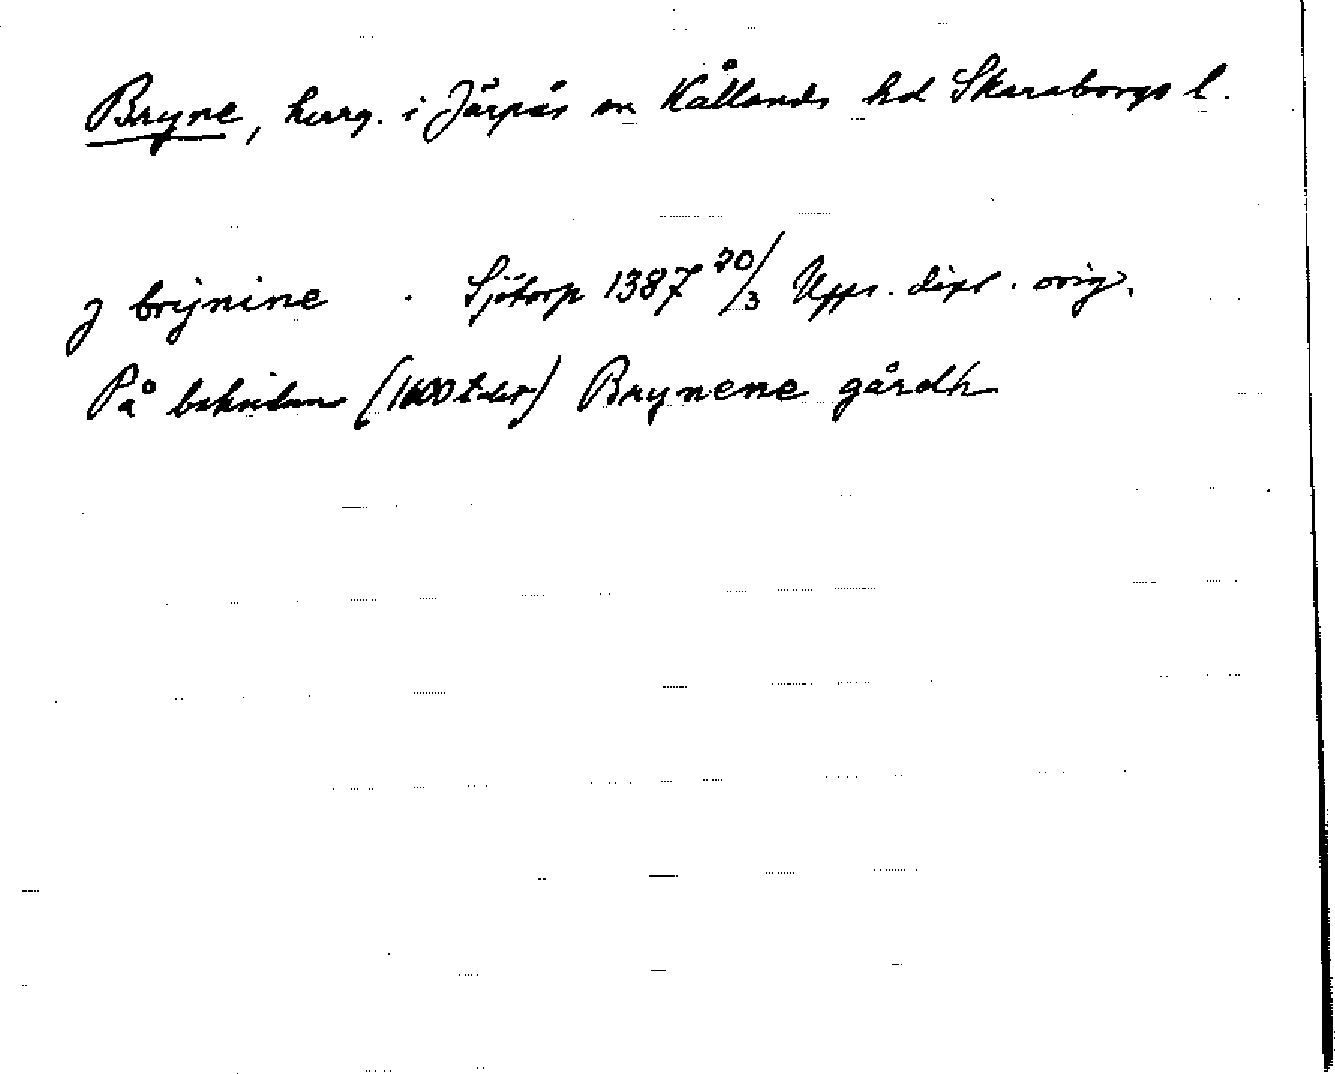 Bryne, herrg. i Järpås sn Kållands hd Skaraborgs l.
j brijnine . Sjötorp 1387 20/3 Upps. dipl. orig.
På baksidan (1600 t-let) Brynene gårdh